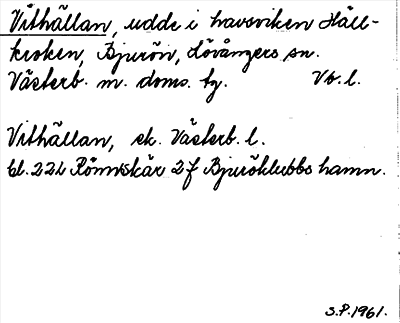 Vithällan, udde i havsviken Häll-
kroken, Bjurön, Lövångers sn.
Västerb. m. doms. tg. Vb. l.
Vithällan, ek. Västerb. l.
bl. 22L Rönnskär 2f Bjuröklubbs hamn.
S.P. 1961.